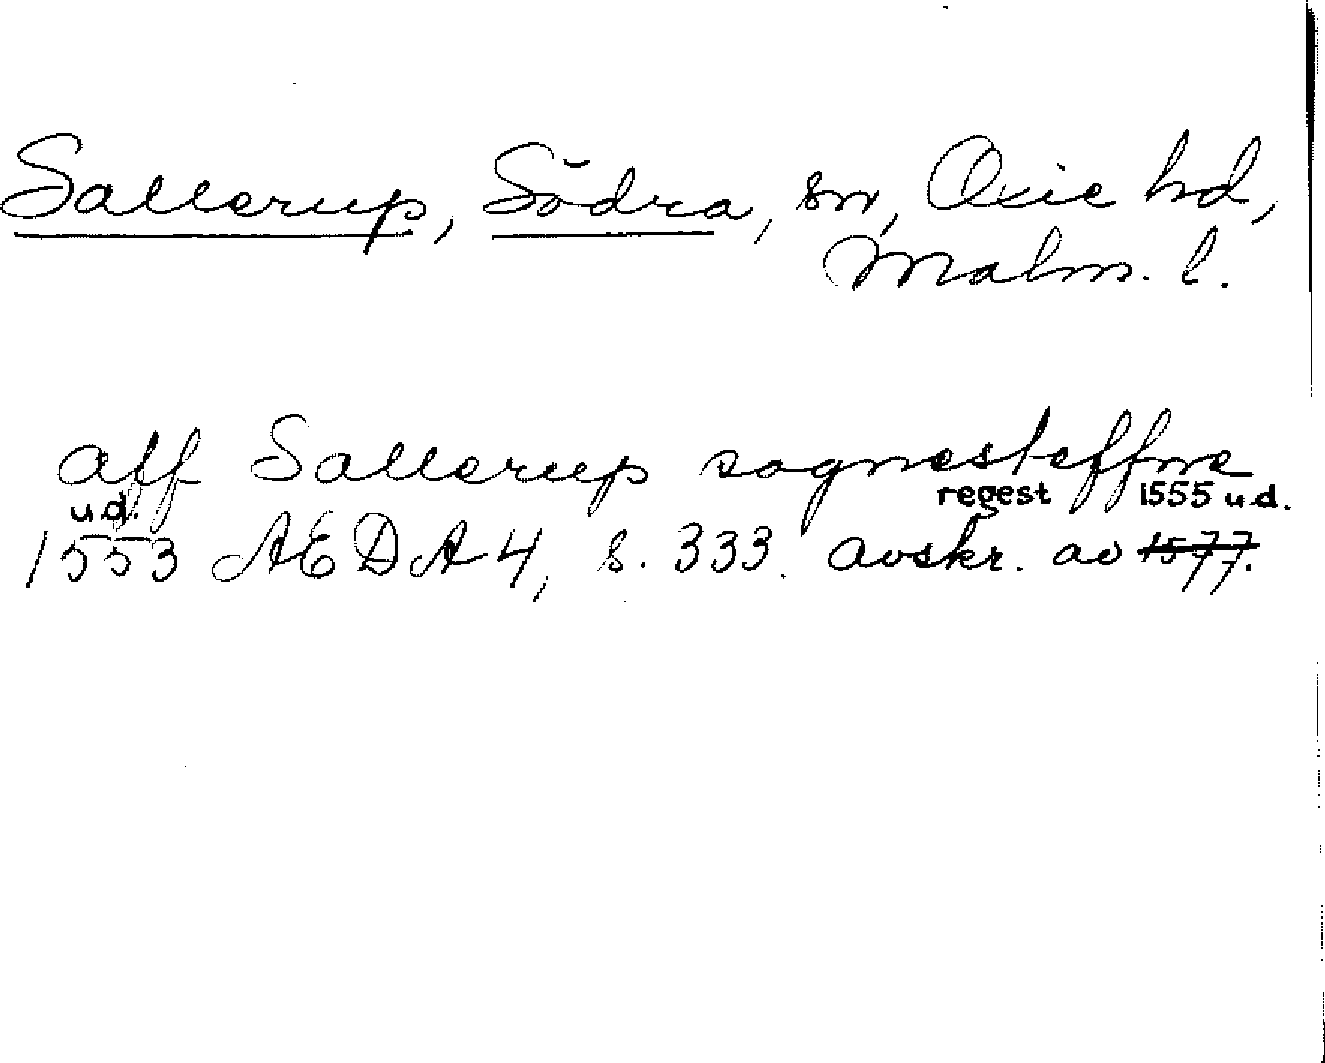 Sallerup, Södra, sn, Oxie hd,
Malm. l.
aff Sallerup sognesteffne
u.d. regest 1555 u.d.
1553 AEDA 4, s. 333. avskr. av 1577.